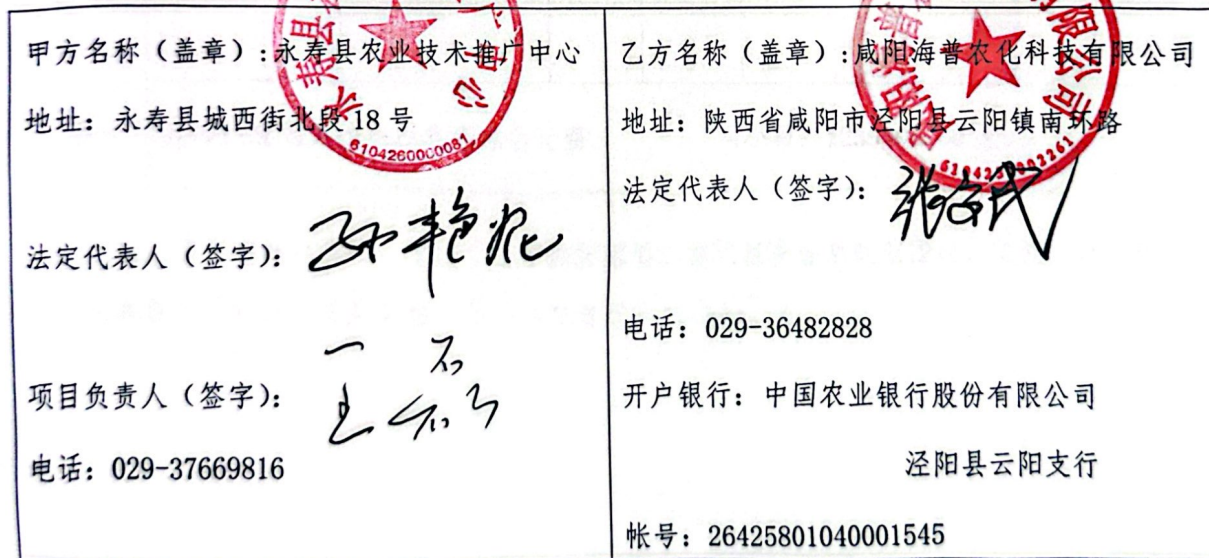 甲方名称（盖章）:永寿县农业技术推广中心
地址：永寿县城西街北段18号
6104260000081
法定代表人（签字）：
项目负责人（签字）：
电话：029-37669816
乙方名称（盖章）:咸阳海普农化科技有限公司
地址：陕西省咸阳市泾阳县云阳镇南环路
法定代表人（签字）：
电话：029-36482828
开户银行：中国农业银行股份有限公司
泾阳县云阳支行
帐号：26425801040001545